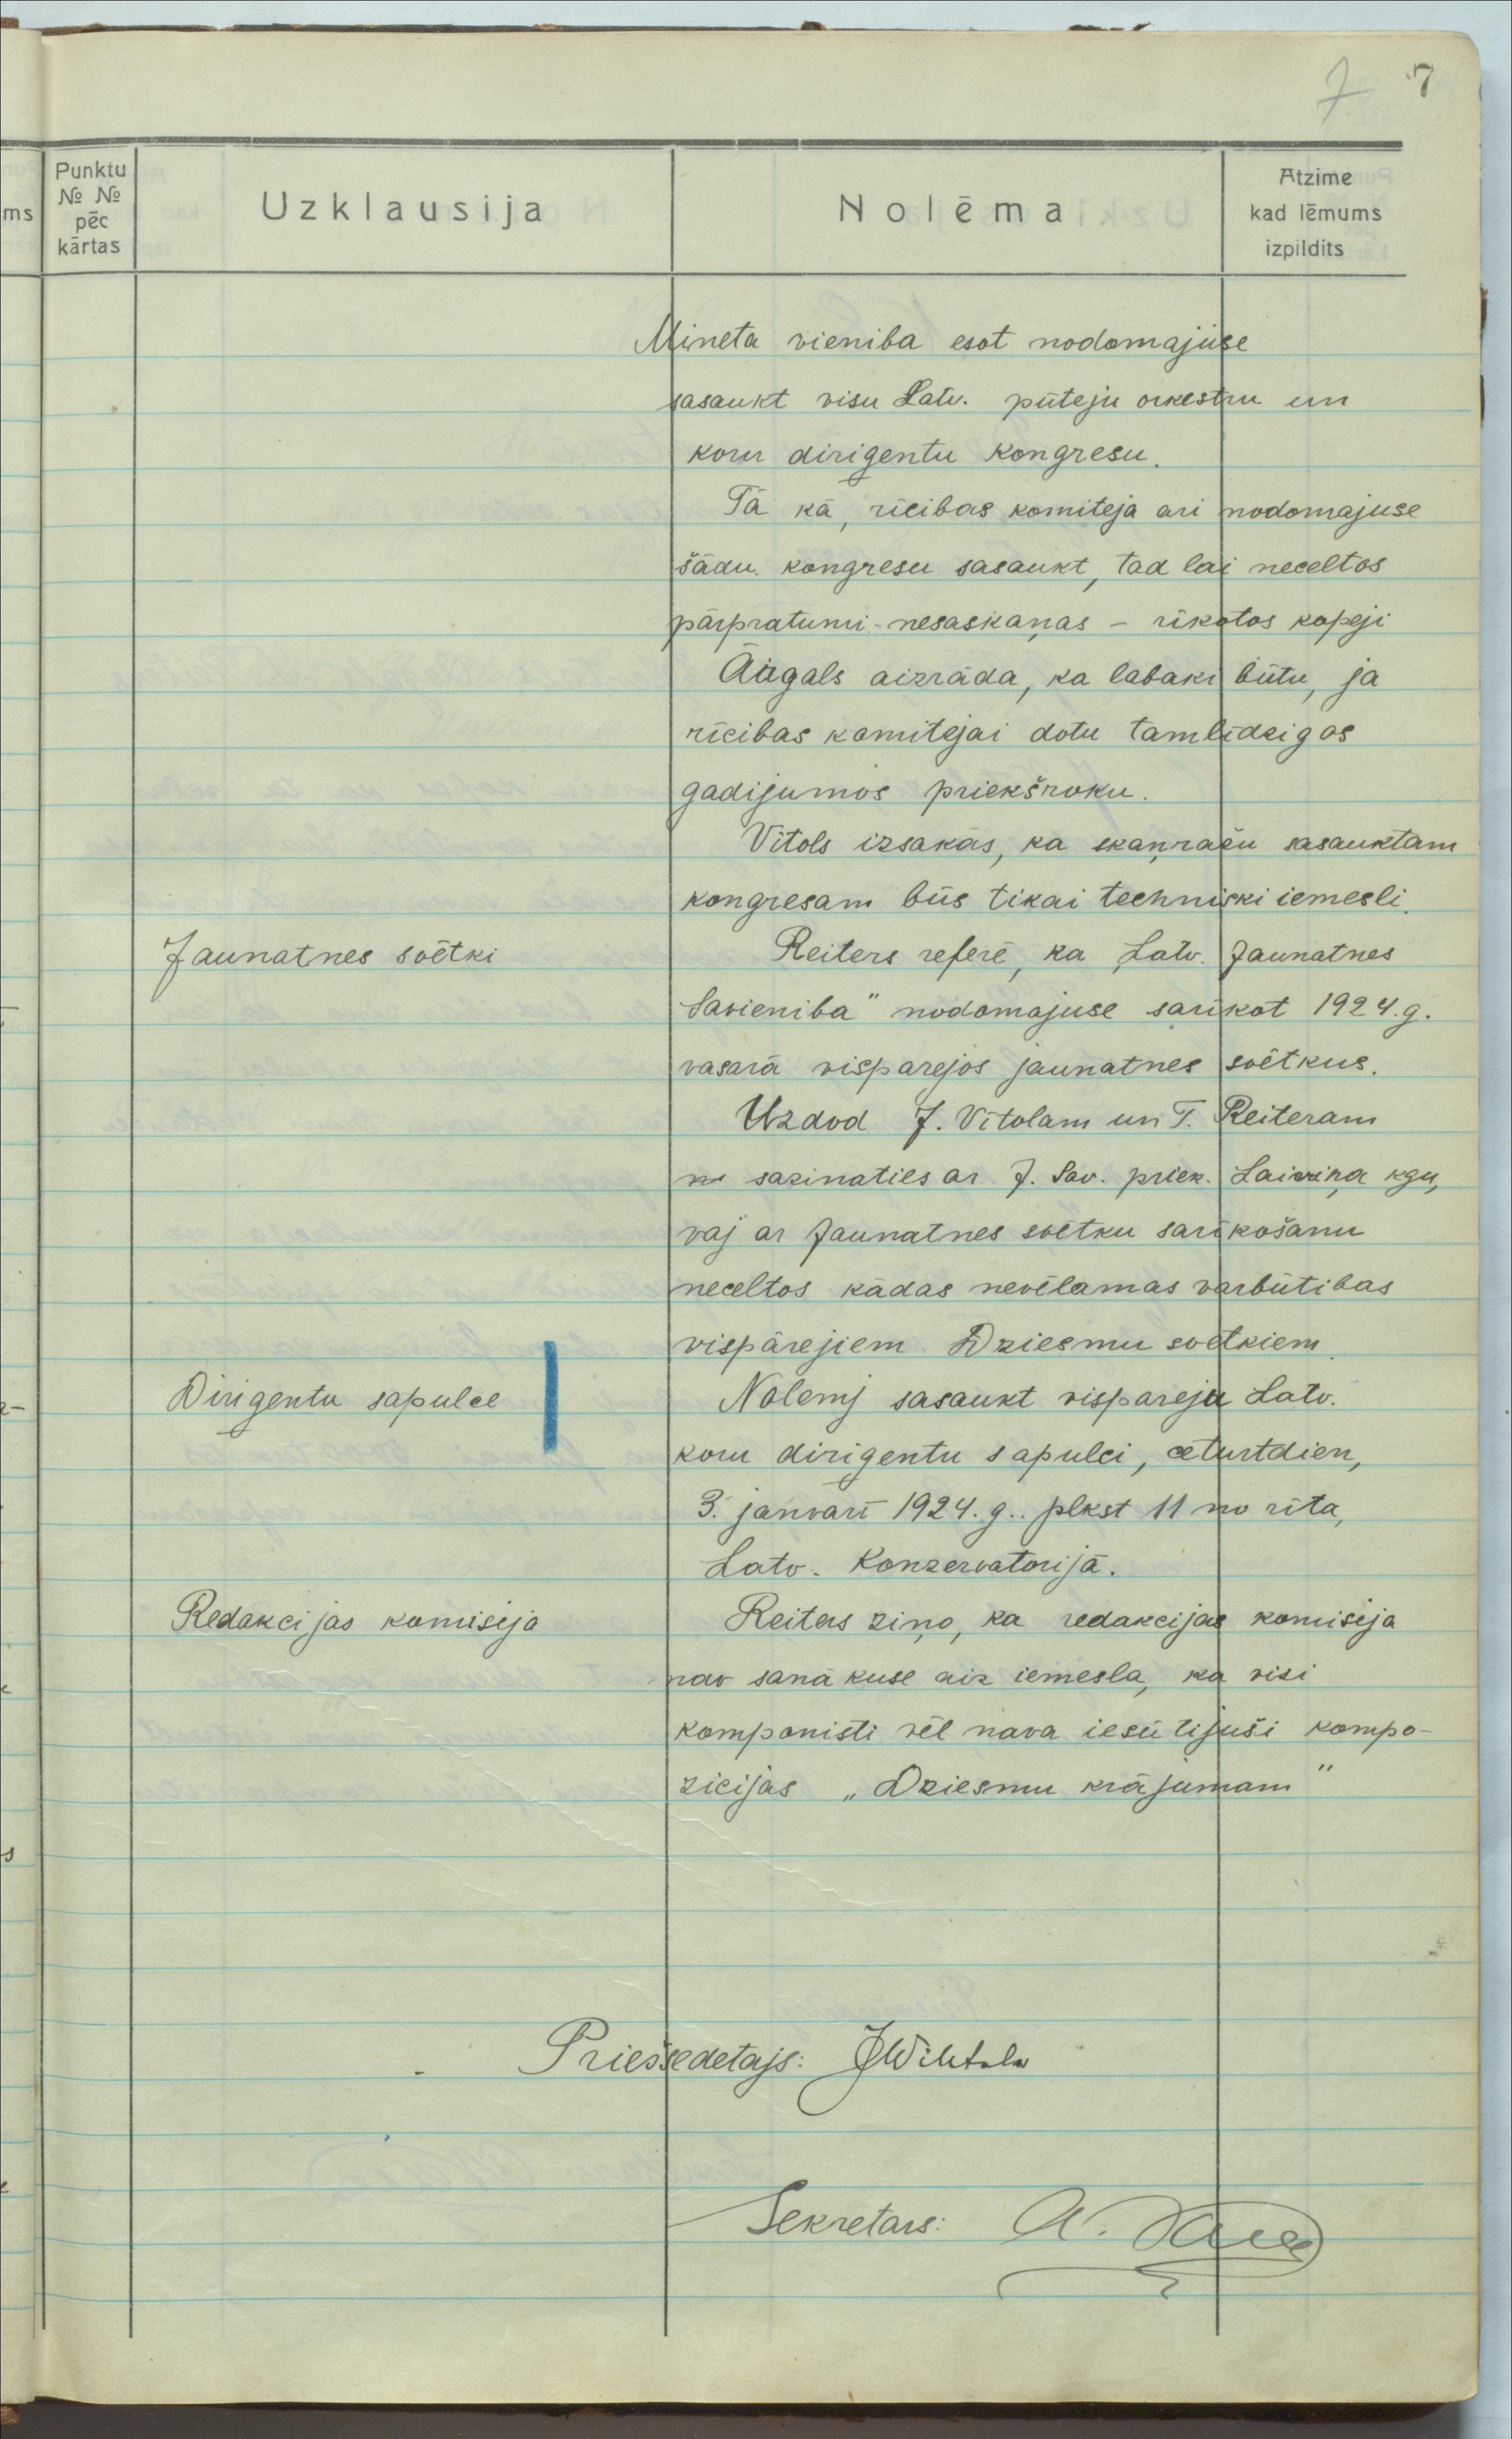 7 7
ms
Punktu
№ №
pēc
kārtas
Uzklausija
Nolēma
Atzime
kad lēmums
izpildits
Mineta vieniba esot nodomajuse
sasaukt visu Latv. pūteju orkestru un
koru dirigentu kongresu.
Tā kā, rīcibas komiteja ari nodomajuse
šādu kongresu sasaukt, tad lai neceltos
pārpratumi-nesaskaņas – rīkotos kopeji
aizrāda, ka labaki būtu, ja
rīcibas komitejai dotu tamlīdzigos
gadijumos priekšroku.
Vītols izsakās, ka skaņražu sasauktam
kongresam būs tikai techniski iemesli.
Jaunatnes svētki
Reiters referē, ka „Latv. Jaunatnes
Savieniba" nodomajuse sarīkot 1924.g.
vasarā visparejos jaunatnes svētkus.
Uzdod J. Vītolam un T. Reiteram
sazinaties ar J. Sav. priek. Laiviņa kgu,
vaj ar Jaunatnes svētku sarīkošanu
neceltos kādas nevēlamas varbūtibas
vispārejiem Dziesmu svētkiem.
Dirigentu sapulce
Nolemj sasaukt vispareju Latv.
koru dirigentu sapulci, ceturtdien,
3. janvarī 1924.g.. plkst 11 no rīta,
Latv. Konzervatorijā.
Redakcijas komisija
Reiters ziņo, ka redakcijas komisija
nav sanākuse aiz iemesla, ka visi
komponisti vēl nava iesūtijuši kompo-
zicijas „Dziesmu krājumam"
Priešsedetajs: JWihtols
Sekretars: A.